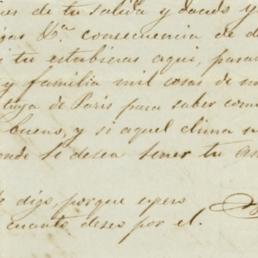 de tu salida y dando y
consecuencia de d
si tu estubieras aqui, pasa
y familia mil cosas de m
tuya de Paris para saber com
bueno, y si aquel clima
onde se desea tener tu
te digo, porque espero
cuanto deseo por el.